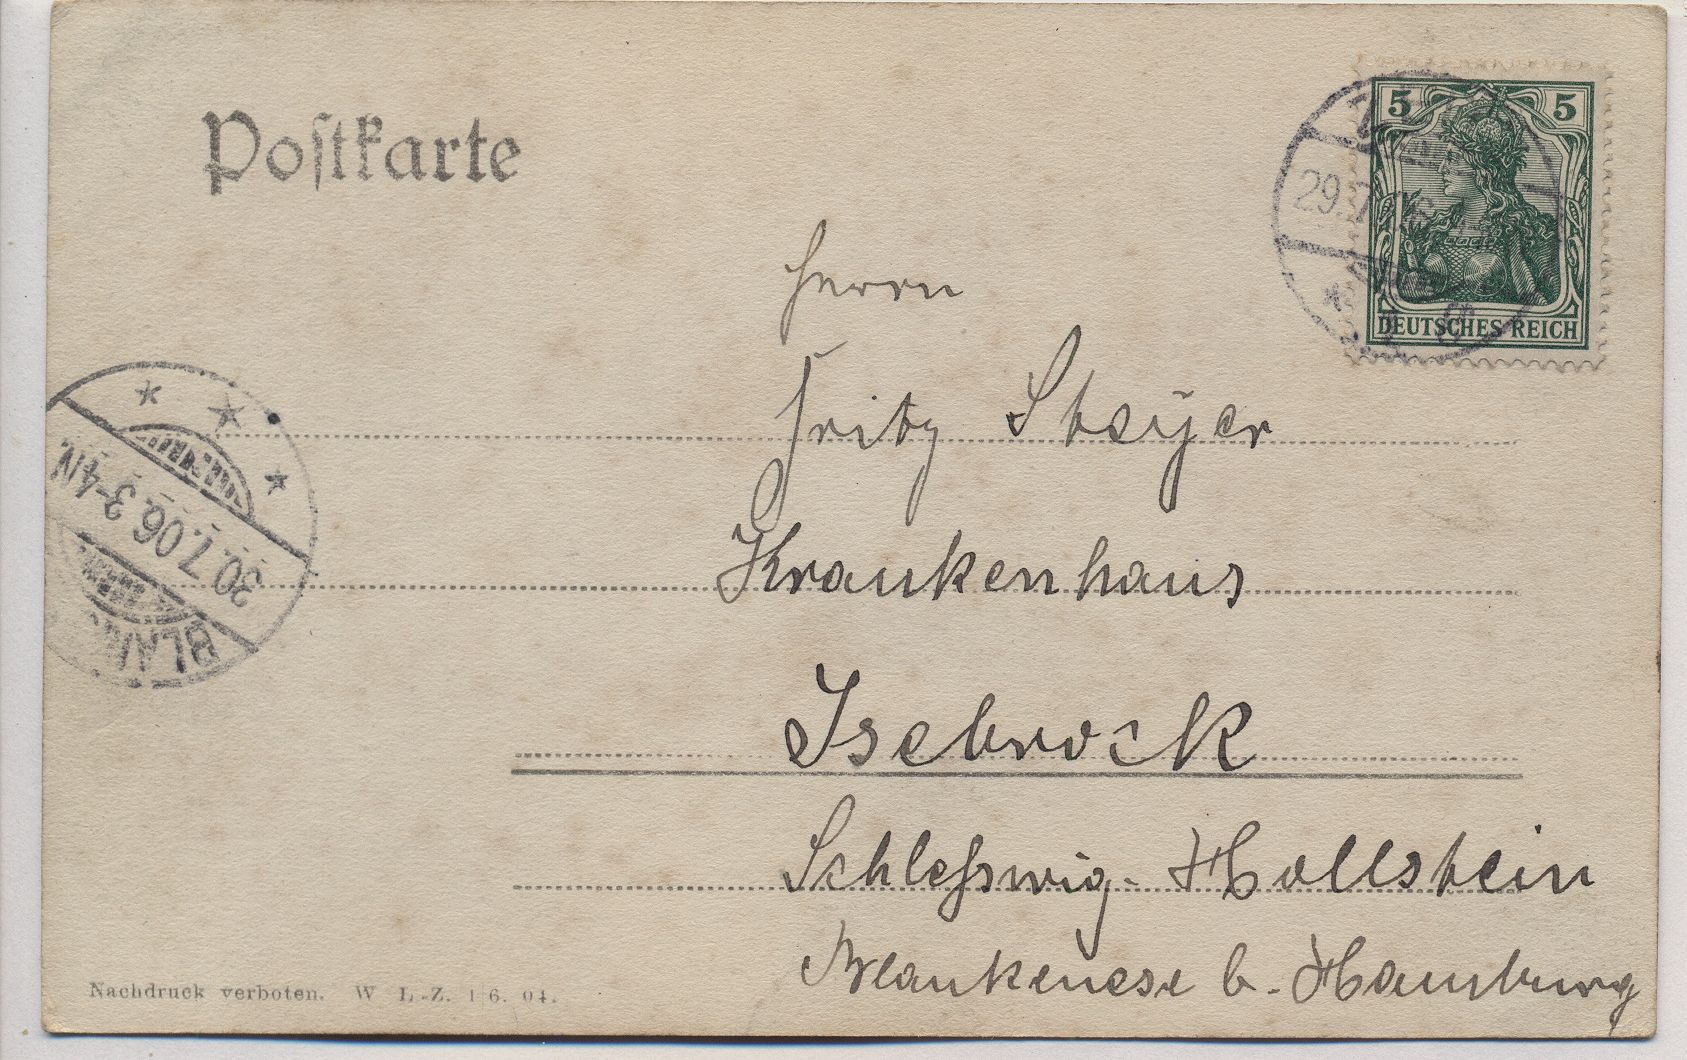 Postkarte
5 5
DEUTSCHES REICH
29.7
Herrn
Fritz Steÿer
Krankenhaus
Isebrock
Schleßwig-Hollstein
Blankenese b. Hamburg
30.7.06. 3-4N.
BLANK
Nachdruck verboten. W. L.-Z. 1 6. 04.